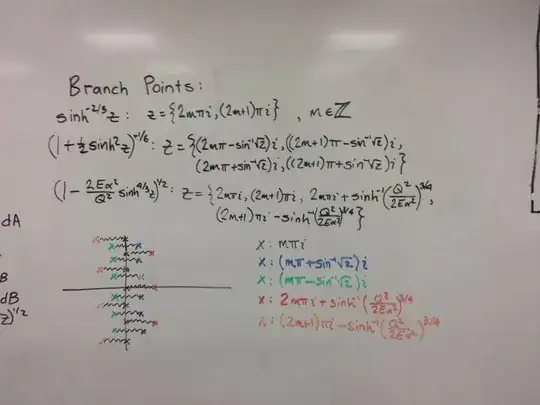 Branch Points:
sinh^{-2/3} z : z = {2mπi, (2m+1)πi} , m ∈ ℤ
(1 + ½ sinh² z)^{-1/6} : z = {(2mπ - sin⁻¹√2)i, ((2m+1)π - sin⁻¹√2)i,
(2mπ + sin⁻¹√2)i, ((2m+1)π + sin⁻¹√2)i}
(1 - 2Eα²/Q² sinh^{4/3} z)^{1/2} : z = {2mπi, (2m+1)πi, 2mπi + sinh⁻¹(Q²/2Eα²)^{3/4},
(2m+1)πi - sinh⁻¹(Q²/2Eα²)^{3/4}}
dA
B
dB
z)^{1/2}
x : mπi
x : (mπ + sin⁻¹√2)i
x : (mπ - sin⁻¹√2)i
x : 2mπi + sinh⁻¹(Q²/2Eα²)^{3/4}
x : (2m+1)πi - sinh⁻¹(Q²/2Eα²)^{3/4}